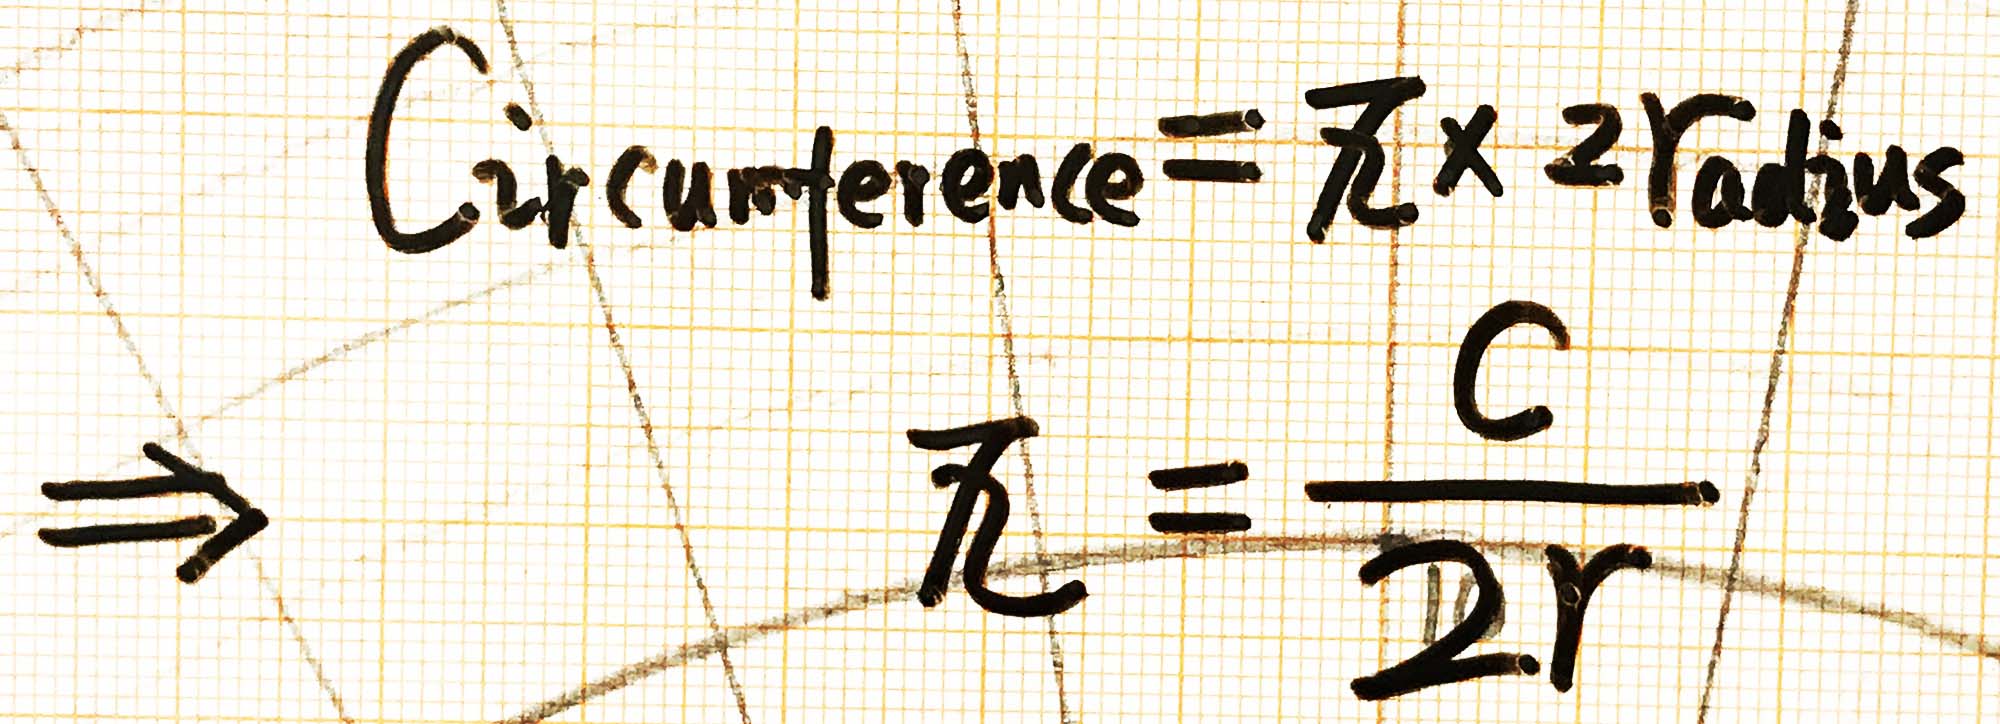 Circumference = π × 2radius
⇒ π = C / 2r